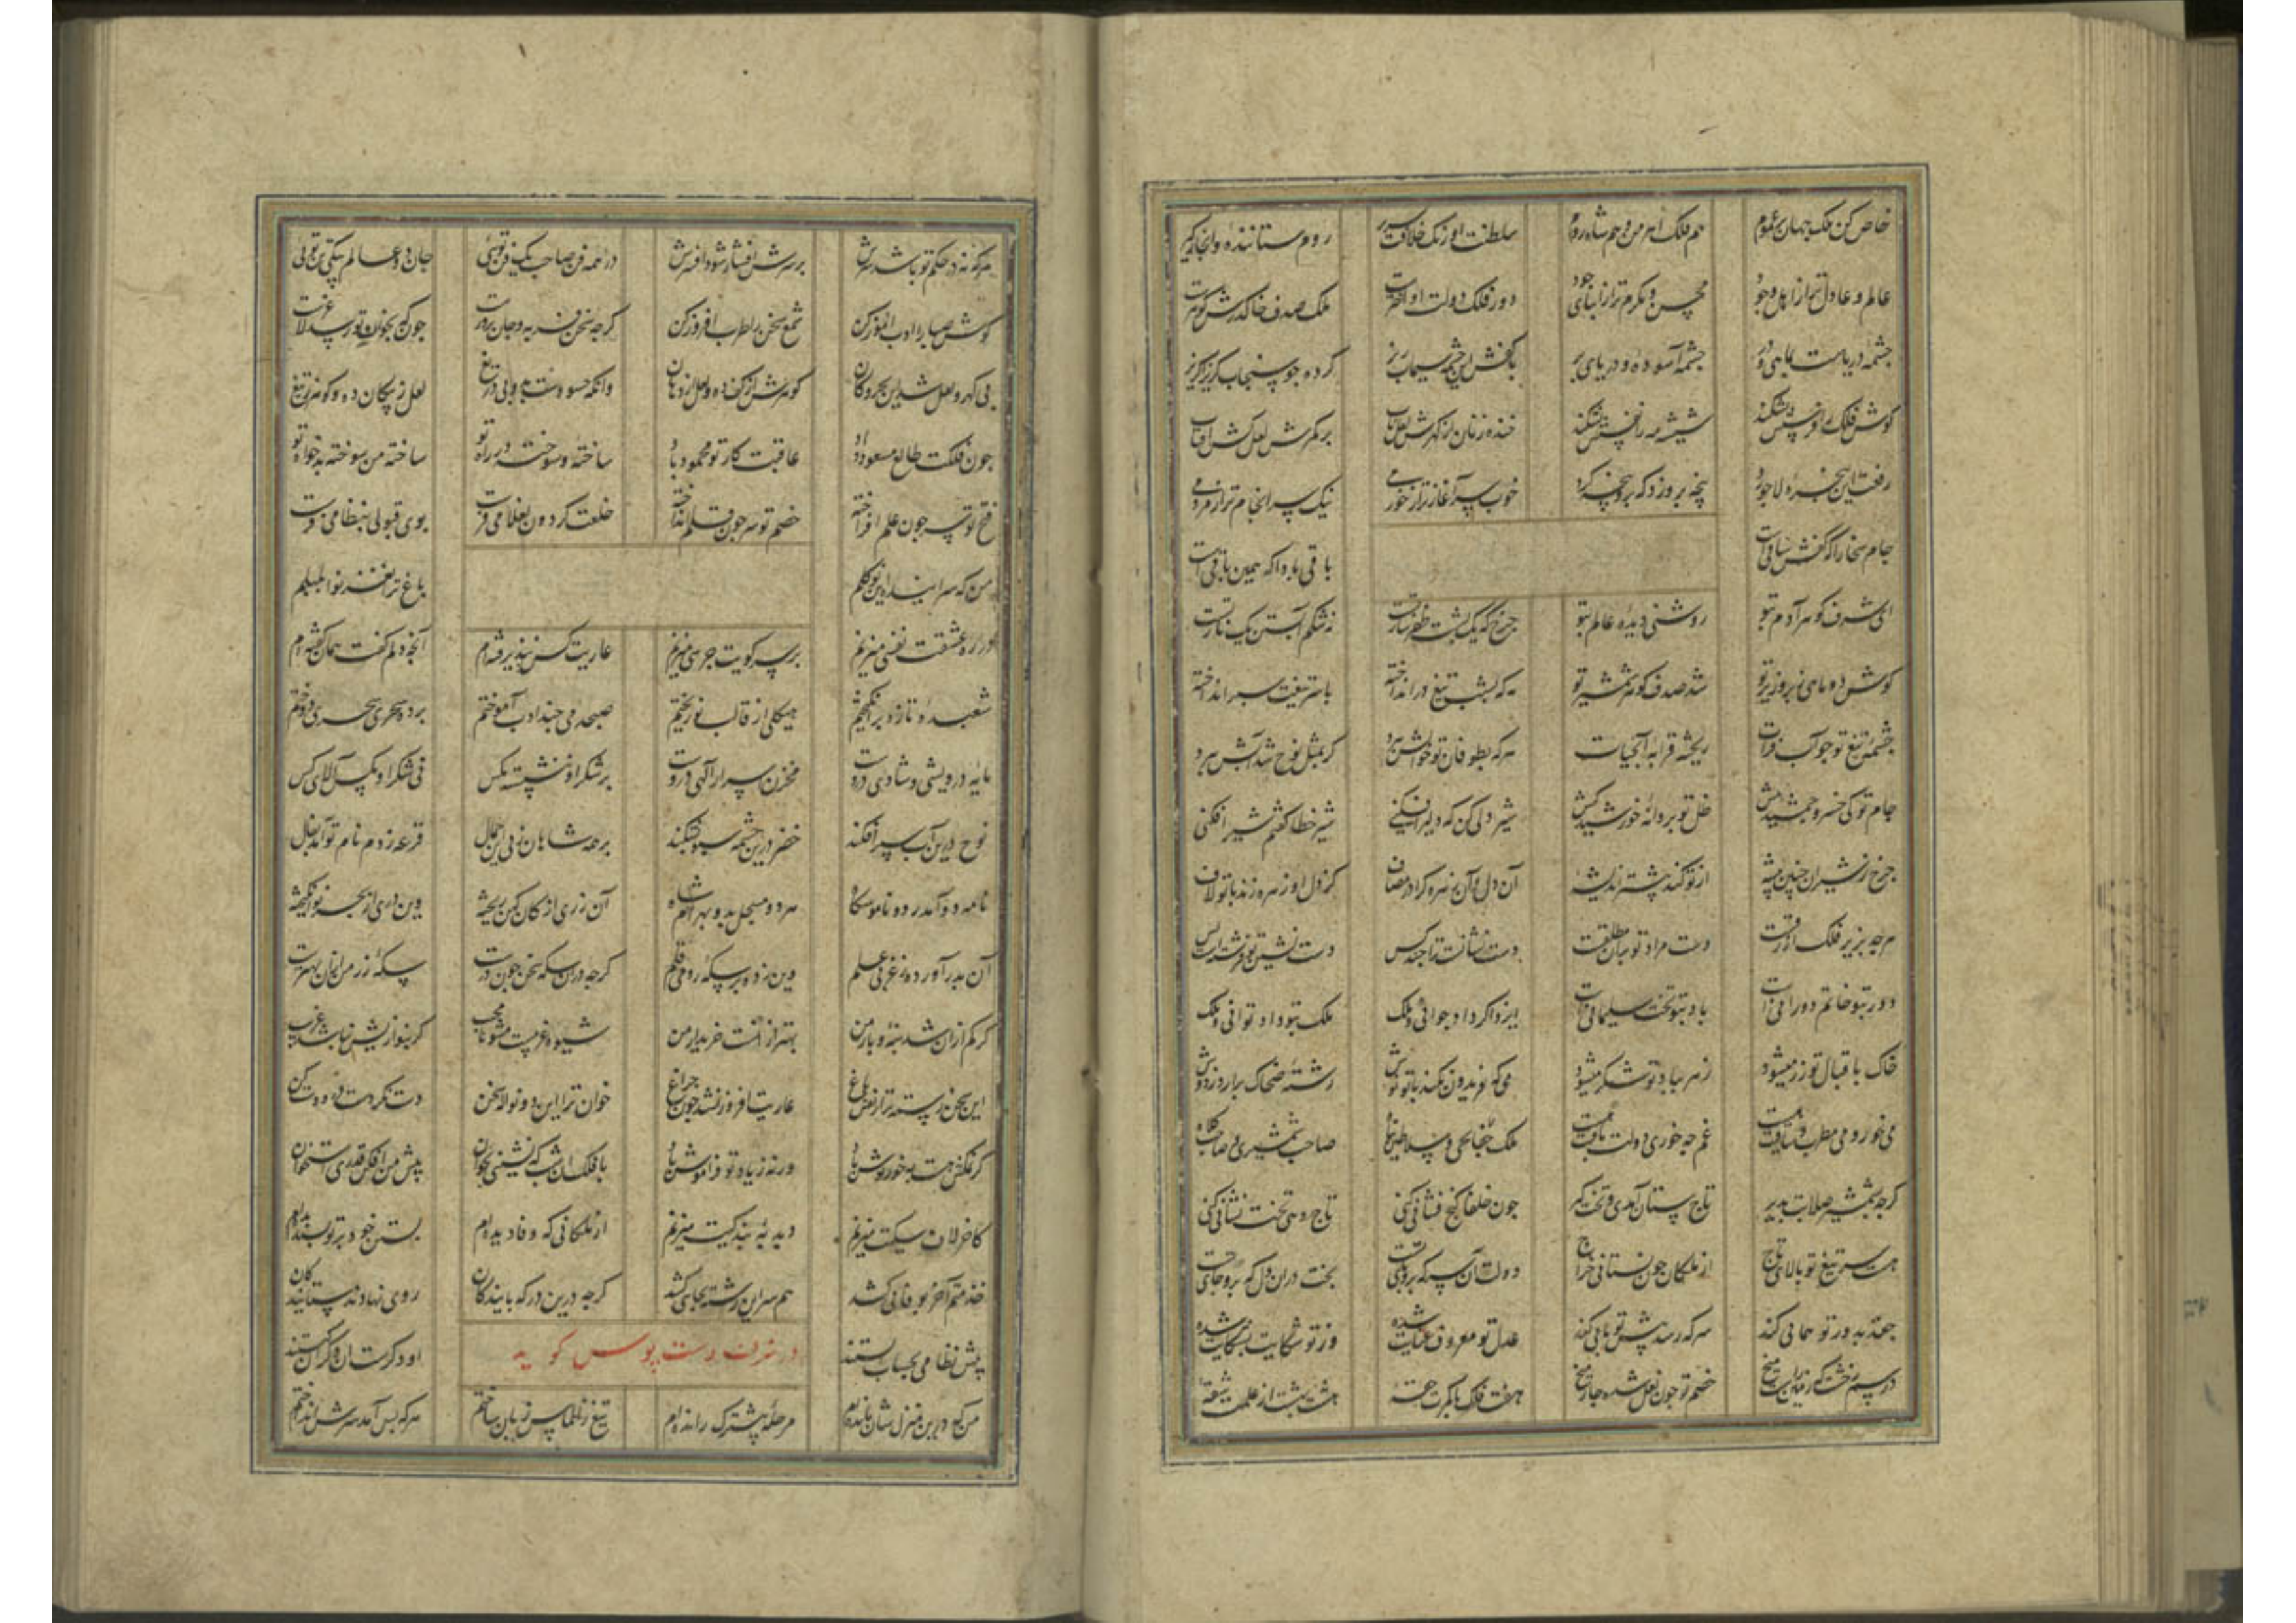 خاص کن ملک جهان بر عموم هم ملک ارمن و هم شاه روم سلطنت اورنک خلافت سریر روم ستاننده و ابخازکیر
عالم و عادل تر از اهل وجود محسن و مکرم تر از ابنای جود دور فلک دولت او اختر است ملک صدف خاک درش کوهر است
چشمه دریاست بماهی و در چشمه آسوده و دریای پر با کفش این چشمه سیماب ریز کرده جو سیماب کریزاکریز
کوش فلک را شیشه مه را خنده زنان از کمرش لعل ناب بر کمرش لعل کش آفتاب
رفت این پنجره لاجورد پنجه برو زد که بروبنجه کرد خوب سرآغازتر از خرمی نیک سرانجام تر از مردمی
جام سخا را که کفش ساقی است باقی باد اکه همین باقی است
ای شرف کوهر آدم بتو روشنی دیده عالم بتو چرخ که یک پشت ظفر ساز تست نه شکم آبستن یک راز تست
کوش دو ماهی زبر و زیر تو شد صدف کوهر شمشیر تو مه که بشب تیغ درانداخته با سر تیغت سپر انداخته
چشمه تیغ تو جو آب فرات ریخته قرابه آبحیات هر که بطوفان تو خوابش برد کر بمثل نوح شد آبش برد
جام تو کیخسرو جمشیدهش ظل تو پروانه خورشیدکش شیر دلی کن که دلیر افکنی شیر خطا کفتم شیر افکنی
چرخ ز شیران چنین بیشه از تو کند بیشتر اندیشه آن دل و آن زهره کرا در مصاف کز دل و از زهره زند با تو لاف
هرچه بزیر فلک ازرقست دست مراد تو بر آن مطلقست دست نشانت ترا چند کس دست نشین تو فرشتست و بس
دور بتو خاتم دورانی است باد بتو تخت سلیمانی است ایزد اکر داد جوانی و ملک ملک بتو داد توانی و ملک
خاک باقبال تو زر میشود زهر بیاد تو شکر میشود می که فریدون نکند با تو نوش رشته ضحاک برآرد ز دوش
می خور و می مطرب و ساقیت هست غم چه خوری دولت باقیت هست ملک حفاظی و سلاطین پناه صاحب شمشیری و صاحب کلاه
کرچه بشمشیر صلابت پذیر تاج ستان آمدی و تخت کیر چون خلفا کنج فشانی کنی تاج دهی تخت نشانی کنی
هست سر تیغ تو بالای تاج از ملکان چون نستانی خراج دولت آن سر که برو پای تست بخت در آن دل که درو جای تست
جغد بدور تو همایی کند سر که رسد پیش تو پایی کند عدل تو معروف عنایت شده وز تو شکایت بشکایت شده
در سم رخشت که زمین راست بیخ خصم تو چون نعل شده چار میخ هفت فلک با کهرت حقه هشت بهشت از علمت شقه
هر که نه در حکم تو باشد سرش بر سرش افشار شود افسرش در همه فن صاحب یک فن توئی جان دو عالم بیکی تن توئی
کوش صبا را ادب آموز کن شمع سخن را طرب افروز کن کرچه سخن فربه و جان پرورست چون که بخوان تو رسد لاغرست
بی کهر و لعل شد این بحر و کان کوهرش از کف ده و لعل از دهان وانکه حسود ست برو بی دریغ لعل ز پیکان ده و کوهر ز تیغ
چون فلکت طالع مسعود داد عاقبت کار تو محمود باد ساخته و سوخته در راه تو ساخته من سوخته بدخواه تو
فتح تو سر چون علم افراخته خصم تو سر چون قلم انداخته خلعت کردون بغلامی فرست بوی قبولی بنظامی فرست
من که سراینده این نو کلم باغ ترا نغزنوا بلبلم
در ره عشقت نفسی میزنم بر سر کویت جرسی میزنم عاریت کس نپذیرفته ام آنچه دلم کفت بکو کفته ام
شعبده تازه برانکیختم هیکلی از قالب نو ریختم صبحدمی چند ادب آموختم پرده سحری سحری دوختم
مایه درویشی و شاهی درو مخزن اسرار آلهی درو بر شکر او ننشسته مکس نی مکس او شکر آلای کس
نوح درین آب سپر افکند خضر درین چشمه سبو بشکند بر همه شاهان ز پی این جمال قرعه زدم نام تو آمد بفال
نامه دو آمد ز دو ناموسکاه هر دو مسجل بدو بهرامشاه آن زری از کان کهن ریخته وین دری از بحر نو انکیخته
آن بدر آورده ز غزنی علم وین زده بر سکه رومی قلم کرچه در آن سکه سخن چون زرست سکه زر من از آن بهترست
کر کم از آن شد بنه و بار من بهتر از آنست خریدار من شیوه غریبست مشو نامجیب کر بنوازیش نباشد غریب
این سخن رسته تر از نقش باغ عاریت افروز نشد چون چراغ خوان ترا این دو نواله سخن دست نکرده است برو دست کن
کر نمکش هست بخور نوش باد ورنه ز یاد تو فراموش باد با فلک آن شب که نشینی بخوان پیش من افکن قدری استخوان
کاخر لاف سکیت میزنم دبدبه بندکیت میزنم از ملکانی که وفا دیده ام بستن خود بر تو پسندیده ام
خدمتم آخر بوفایی کشد هم سر این رشته بجایی کشد کرچه درین درکه پایندکان روی نهادند ستایندکان
پیش نظامی بحساب ایستند در شرف دست بوس کوید او دکرست این دکران کیستند
من که درین منزلشان مانده ام مرحله پیشترک رانده ام تیغ ز الماس زبان ساختم هر که پس آمد سرش انداختم